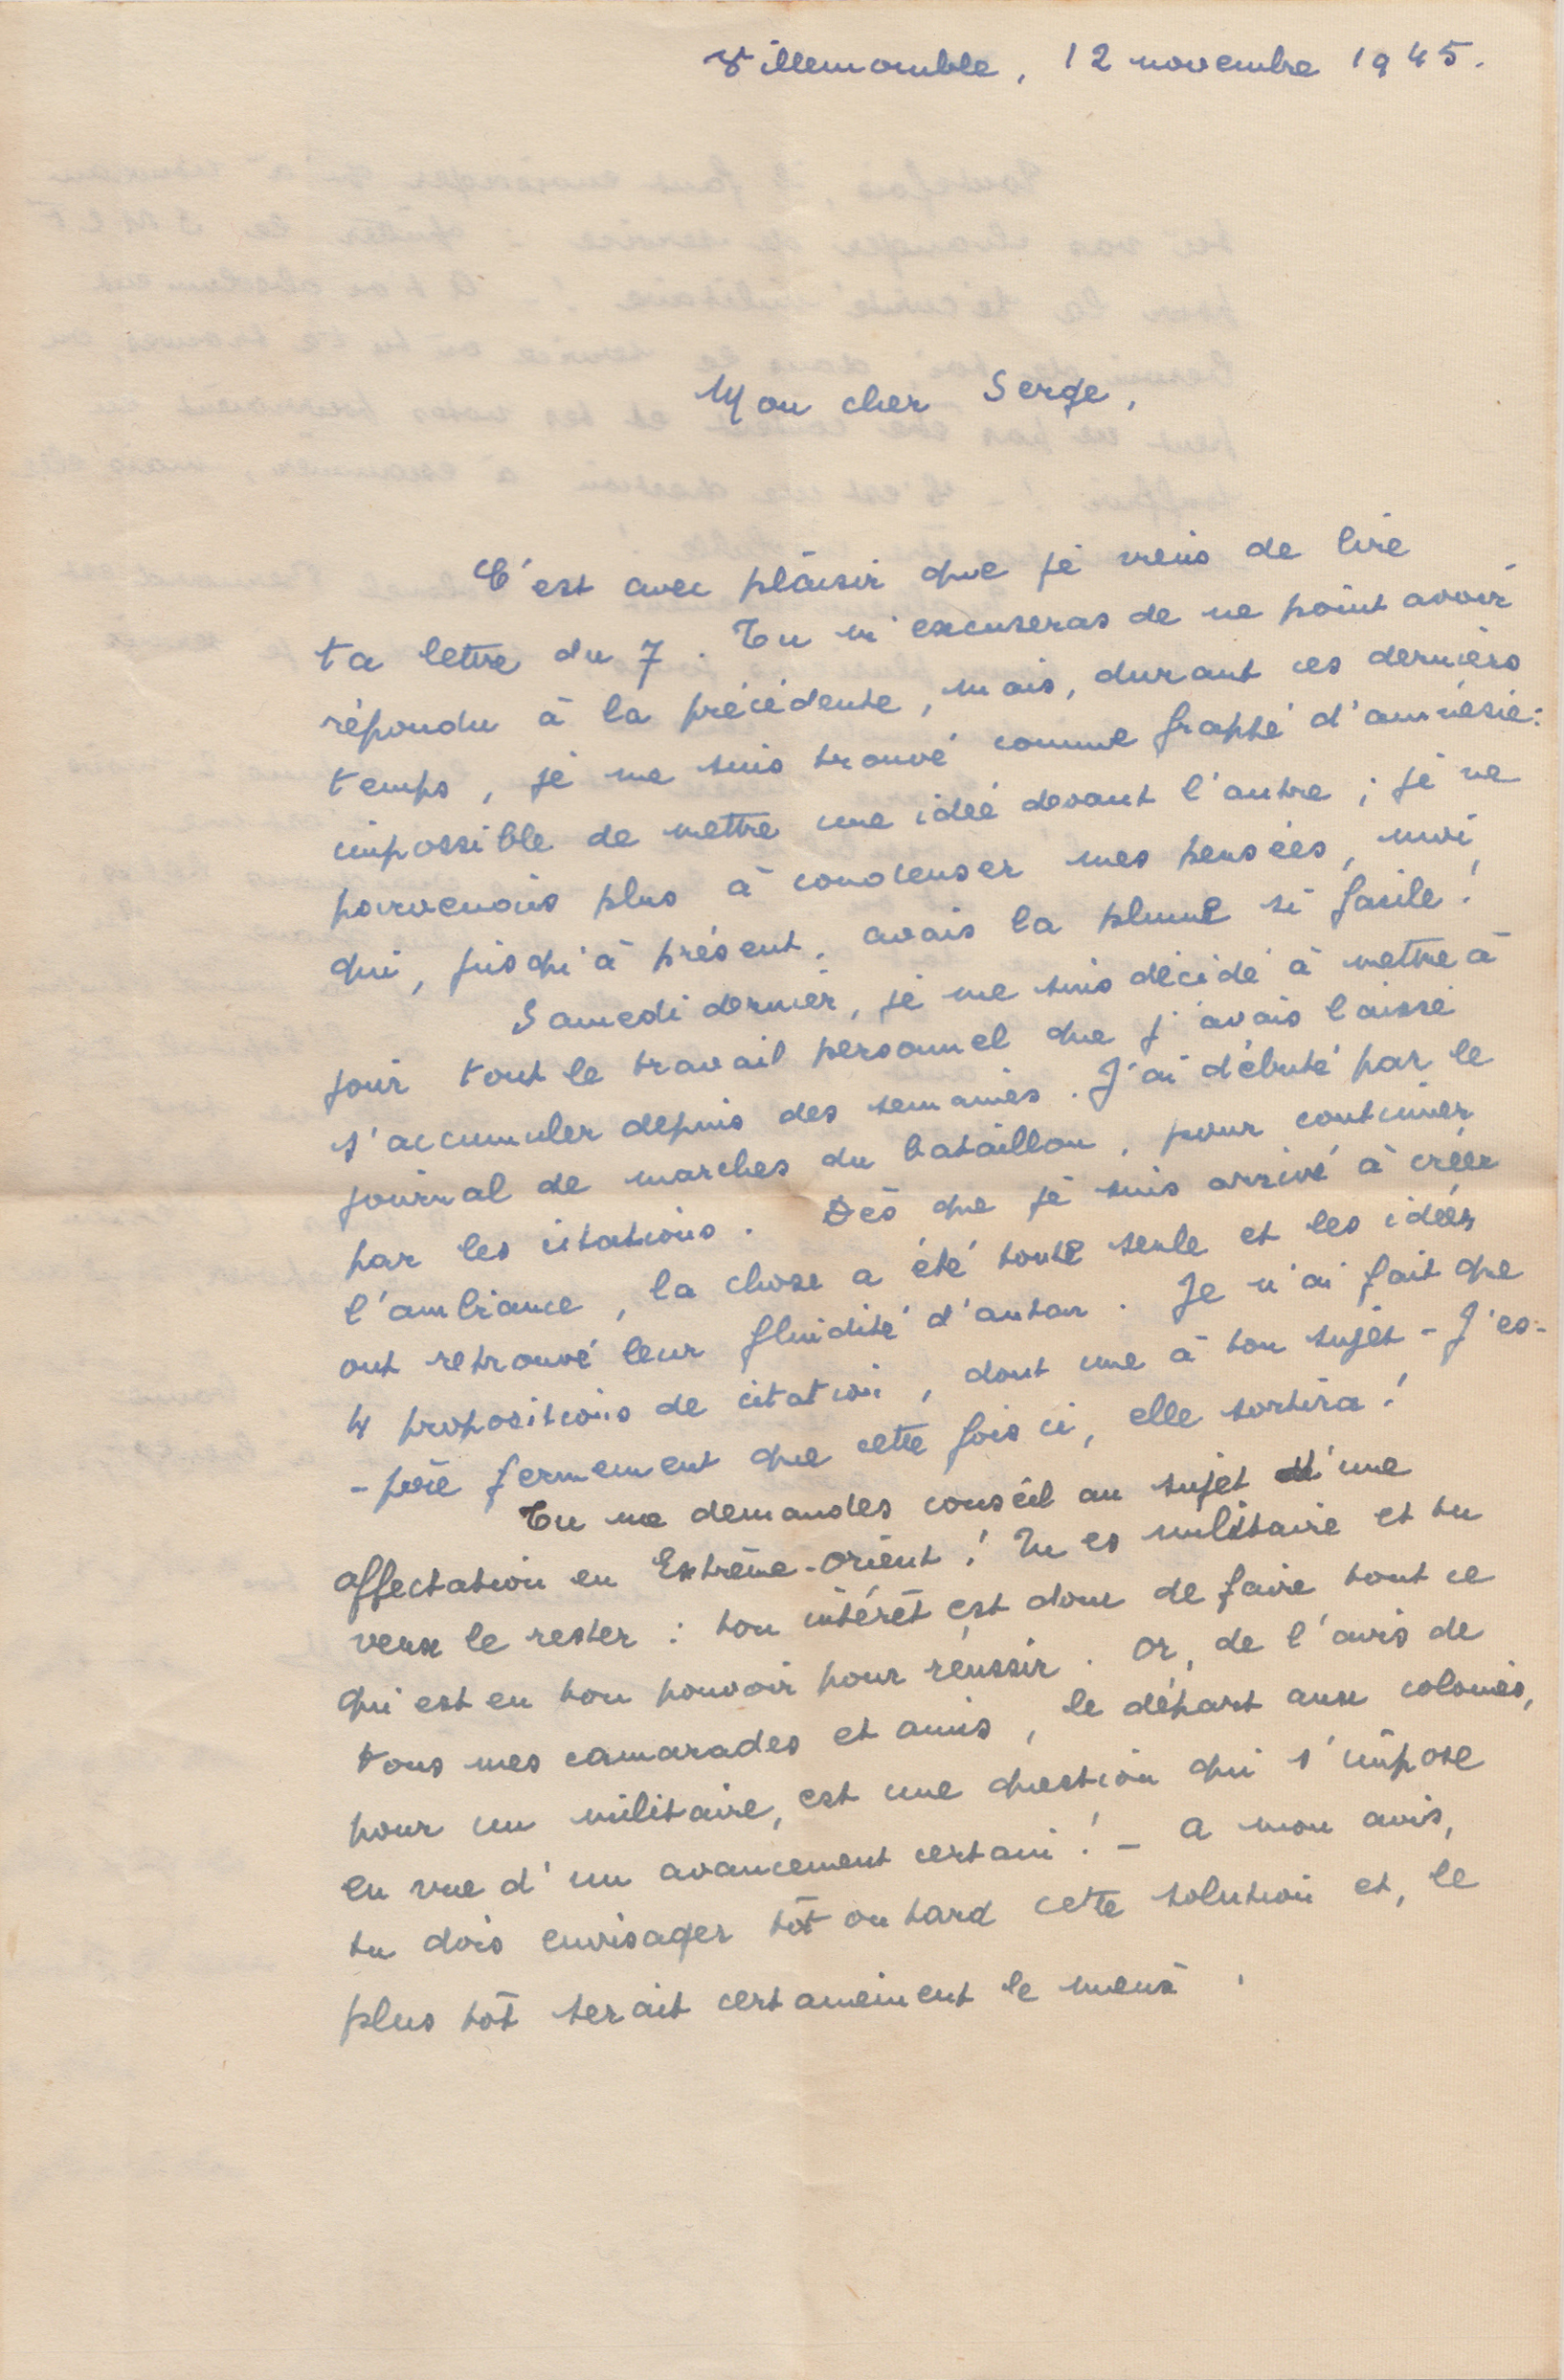 Villemomble, 12 novembre 1945.
Mon cher Serge,
C'est avec plaisir que je viens de lire
ta lettre du 7. Tu m'excuseras de ne point avoir
répondu à la précédente, mais, durant ces derniers
temps, je me suis trouvé comme frappé d'amnésie :
impossible de mettre une idée devant l'autre ; je ne
parvenais plus à condenser mes pensées, moi,
qui, jusqu'à présent, avais la plume si facile !
Samedi dernier, je me suis décidé à mettre à
jour tout le travail personnel que j'avais laissé
s'accumuler depuis des semaines. J'ai débuté par le
journal de marches du bataillon, pour continuer
par les citations. Dès que je suis arrivé à créer
l'ambiance, la chose a été toute seule et les idées
ont retrouvé leur fluidité d'antan. Je n'ai fait que
4 propositions de citation, dont une à ton sujet - J'es-
-père fermement que cette fois ci, elle sortira !
Tu me demandes conseil au sujet d'une
affectation en Extrême-Orient ! Tu es militaire et tu
veux le rester : ton intérêt est donc de faire tout ce
qui est en ton pouvoir pour réussir. Or, de l'avis de
tous mes camarades et amis, le départ aux colonies,
pour un militaire, est une question qui s'impose
en vue d'un avancement certain ! - A mon avis,
tu dois envisager tôt ou tard cette solution et, le
plus tôt serait certainement le mieux.